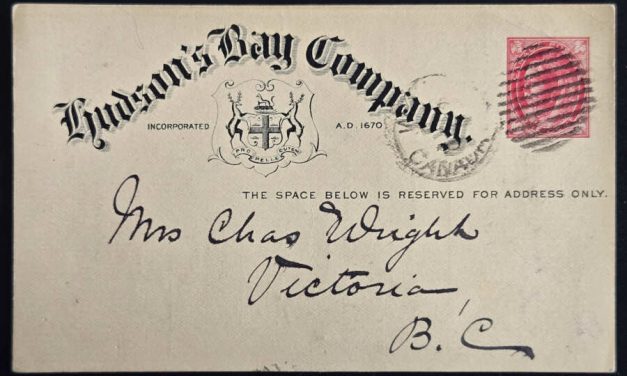 Hudson's Bay Company.
INCORPORATED A.D. 1670
PRO PELLE CUTEM
CANADA
THE SPACE BELOW IS RESERVED FOR ADDRESS ONLY.
Mrs Chas Wright
Victoria
B.C